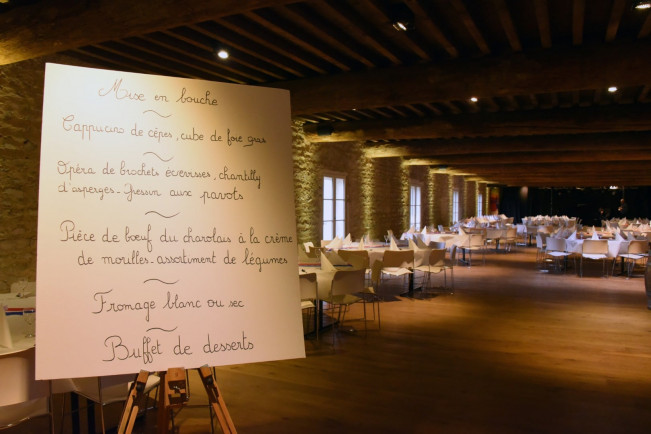 Mise en bouche
Cappucino de cêpes, cube de foie gras
Opéra de brochets écrevisses, chantilly
d'asperges - Gressin aux pavots
Pièce de bœuf du charolais à la crème
de morilles - assortiment de légumes
Fromage blanc ou sec
Buffet de desserts